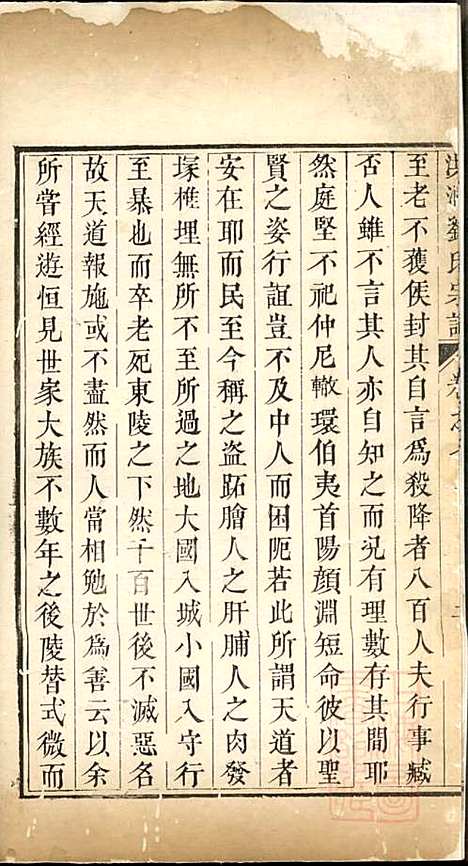 至老不獲侯封其自言爲殺降者八百人夫行事臧
否人雖不言其人亦自知之而況有理數存其間耶
然庭堅不祀仲尼轍環伯夷首陽顏淵短命彼以聖
賢之姿行誼豈不及中人而困阨若此所謂天道者
安在耶而民至今稱之盜跖膾人之肝脯人之肉發
塚椎埋無所不至所過之地大國入城小國入守行
至暴也而卒老死東陵之下然千百世後不滅惡名
故天道報施或不盡然而人當相勉於為善云以余
所嘗經遊恒見世家大族不數年之後陵替式微而